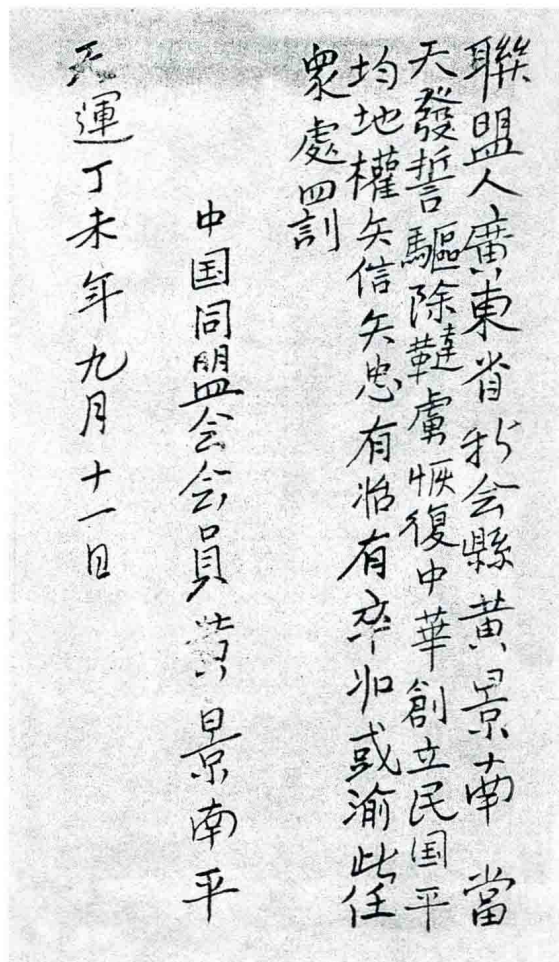 聯盟人廣東省新会縣黄景南 當
天發誓驅除韃虜恢復中華創立民国平
均地權矢信矢忠有始有卒如或渝此任
衆處罰
中国同盟会会員黄景南平
天運丁未年九月十一日